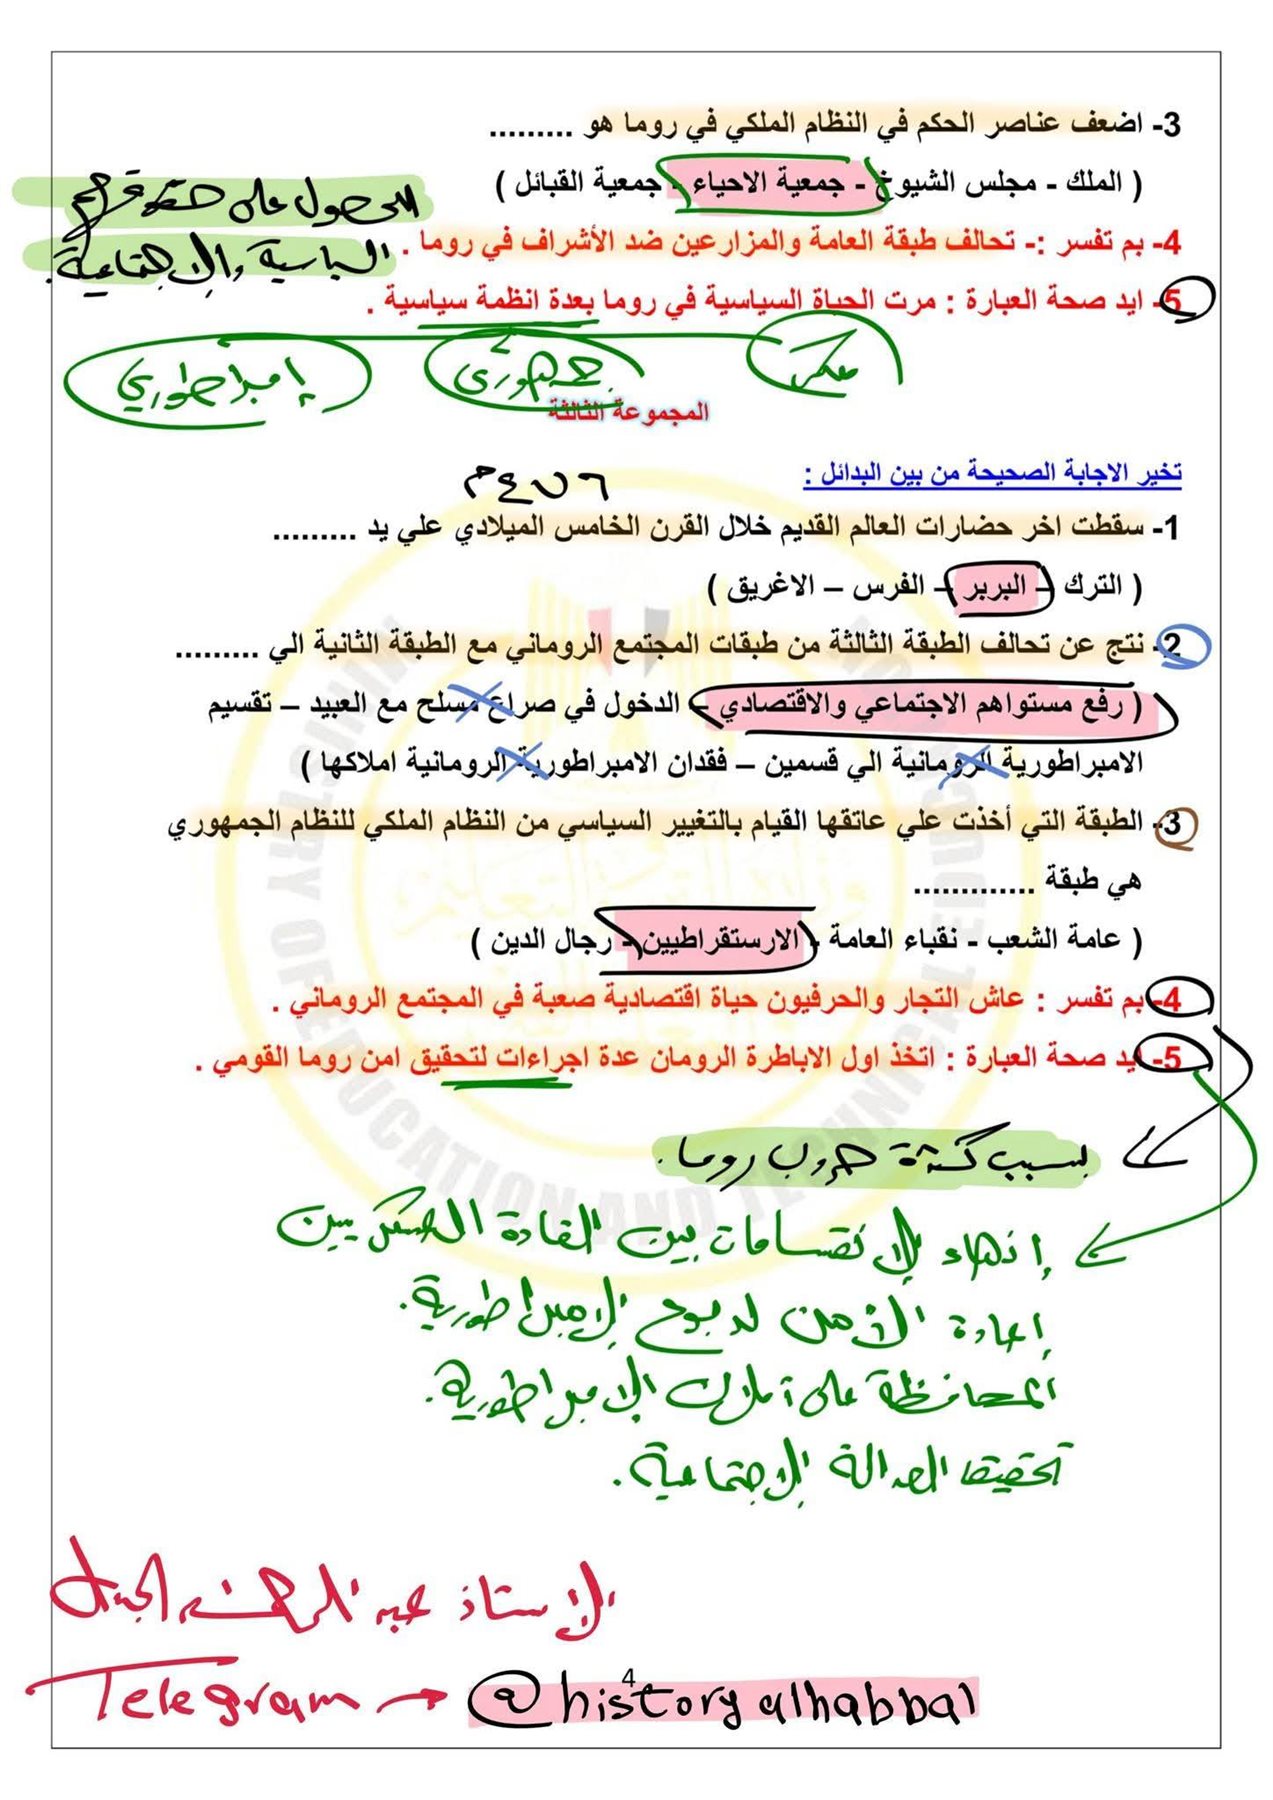 3- اضعف عناصر الحكم في النظام الملكي في روما هو .........
( الملك - مجلس الشيوخ - جمعية الاحياء - جمعية القبائل )
4- بم تفسر :- تحالف طبقة العامة والمزارعين ضد الأشراف في روما .
الحصول على حقوقهم
السياسية والاجتماعية.
5- ايد صحة العبارة : مرت الحياة السياسية في روما بعدة انظمة سياسية .
ملكي
جمهوري
إمبراطوري
المجموعة الثالثة
تخير الاجابة الصحيحة من بين البدائل :
٤٧٦م
1- سقطت اخر حضارات العالم القديم خلال القرن الخامس الميلادي علي يد .........
( الترك – البربر – الفرس – الاغريق )
2- نتج عن تحالف الطبقة الثالثة من طبقات المجتمع الروماني مع الطبقة الثانية الي .........
( رفع مستواهم الاجتماعي والاقتصادي – الدخول في صراع مسلح مع العبيد – تقسيم
الامبراطورية الرومانية الي قسمين – فقدان الامبراطورية الرومانية املاكها )
3- الطبقة التي أخذت علي عاتقها القيام بالتغيير السياسي من النظام الملكي للنظام الجمهوري
هي طبقة .............
( عامة الشعب - نقباء العامة - الارستقراطيين - رجال الدين )
4- بم تفسر : عاش التجار والحرفيون حياة اقتصادية صعبة في المجتمع الروماني .
5- ايد صحة العبارة : اتخذ اول الاباطرة الرومان عدة اجراءات لتحقيق امن روما القومي .
بسبب كثرة حروب روما.
إنهاء الانقسامات بين القادة العسكريين
إعادة الأمن لربوع الإمبراطورية.
المحافظة على أملاك الإمبراطورية.
تحقيق العدالة الاجتماعية.
الاستاذ عبد الرحمن الحبال
4
Telegram → @historyalhabbal
MINISTRY OF EDUCATION AND TECHNICAL EDUCATION